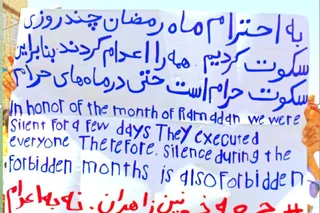 به احترام ماه رمضان چند روزی
سکوت کردیم. همه را اعدام کردند بنابراین
سکوت حرام است حتی در ماه‌های حرام
In honor of the month of Ramadan we were
silent for a few days They executed
everyone Therefore. silence during the
forbidden months is also forbidden
# جمعه خونین زاهدان. نه به اعدام